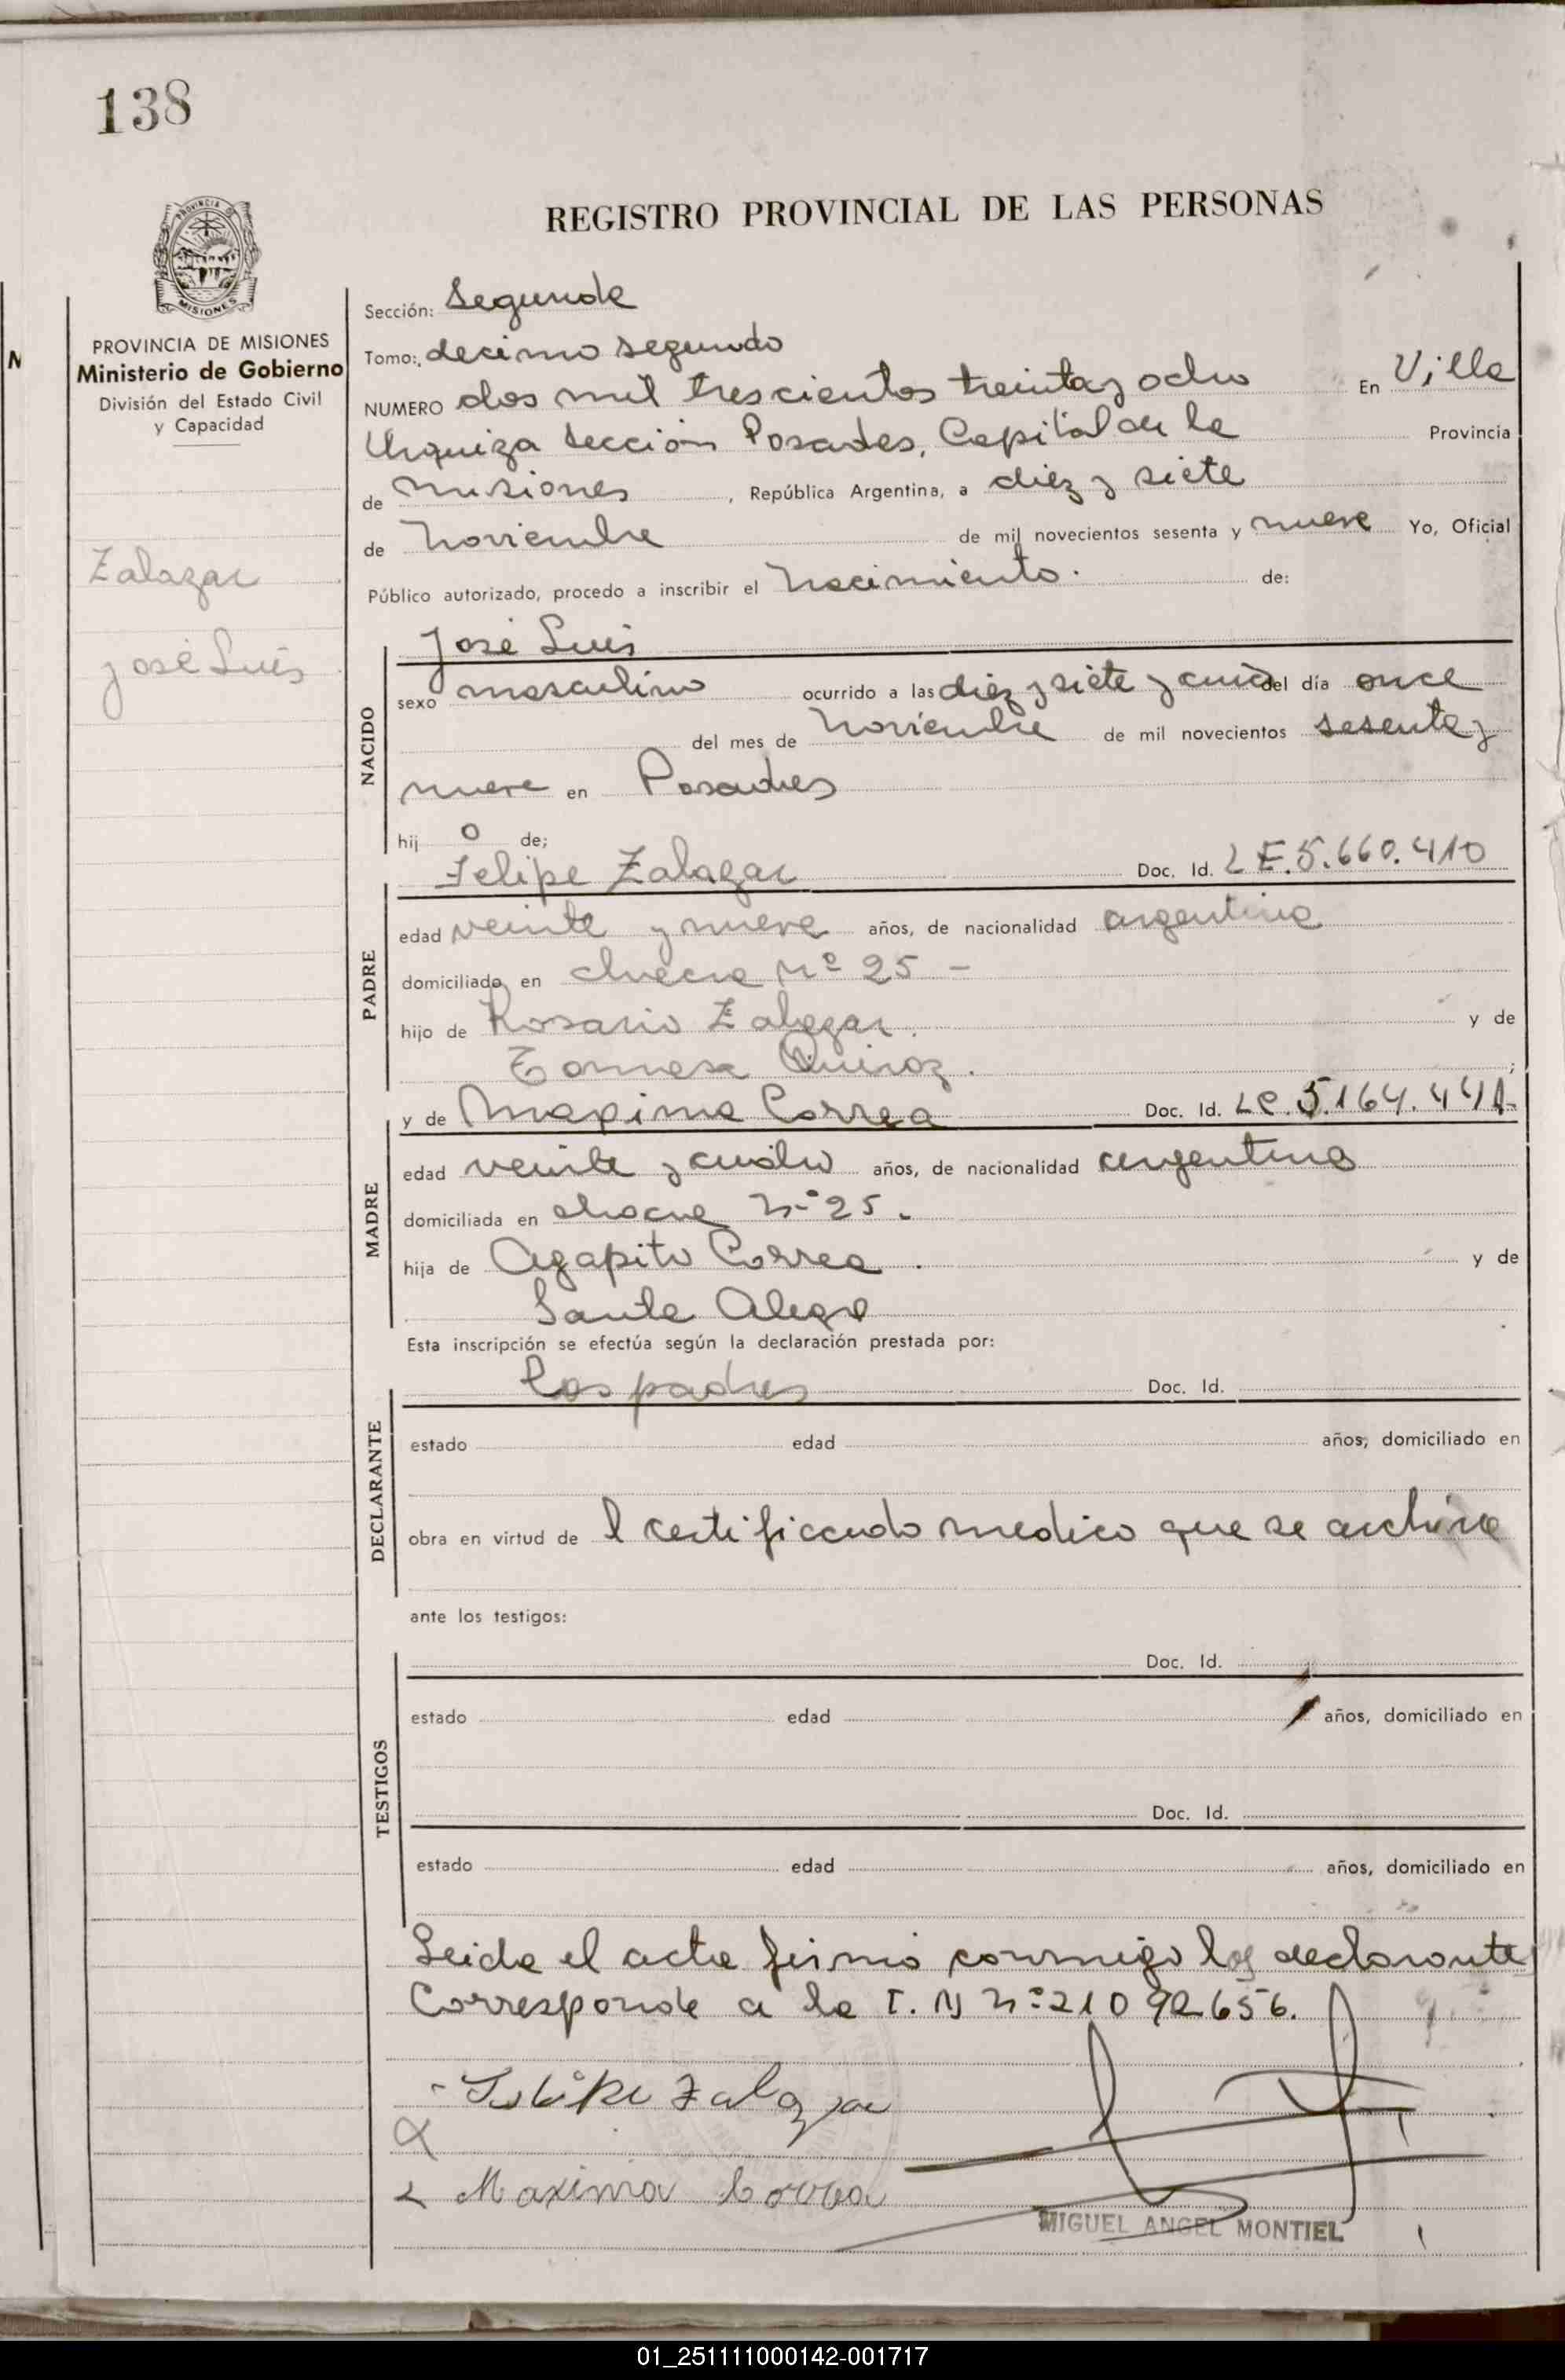 138
REGISTRO PROVINCIAL DE LAS PERSONAS
PROVINCIA DE MISIONES
Ministerio de Gobierno
División del Estado Civil
y Capacidad
Zalazar
José Luis
Sección: Segunda
Tomo: decimo segundo
NUMERO dos mil trescientos treinta y ocho En Villa
Urquiza Sección Posadas, Capital de la Provincia
de Misiones, República Argentina, a diez y siete
de Noviembre de mil novecientos sesenta y nueve Yo, Oficial
Público autorizado, procedo a inscribir el Nacimiento. de:
José Luis
NACIDO
sexo masculino ocurrido a las diez y siete y del día once
del mes de Noviembre de mil novecientos sesenta y
nueve en Posadas
hijo de;
Felipe Zalazar Doc. Id. LE.5.660.410
PADRE
edad veinte y nueve años, de nacionalidad argentina
domiciliado en chacra Nº 25 -
hijo de Rosario Zalazar. y de
Tomasa Quiroz.
y de Maxima Correa Doc. Id. LC.5.164.441-
MADRE
edad veinte y cuatro años, de nacionalidad argentina
domiciliada en chacra Nº 25.
hija de Agapito Correa. y de
Santa Alegre
Esta inscripción se efectúa según la declaración prestada por:
Los padres Doc. Id.
DECLARANTE
estado edad años, domiciliado en
obra en virtud de l certificado medico que se archiva
ante los testigos:
Doc. Id.
TESTIGOS
estado edad años, domiciliado en
Doc. Id.
estado edad años, domiciliado en
Leida el acta firma conmigo los declarante
Corresponde a la I. N Nº 21092656.
Felipe Zalazar
Maxima Correa
MIGUEL ANGEL MONTIEL
01_251111000142-001717